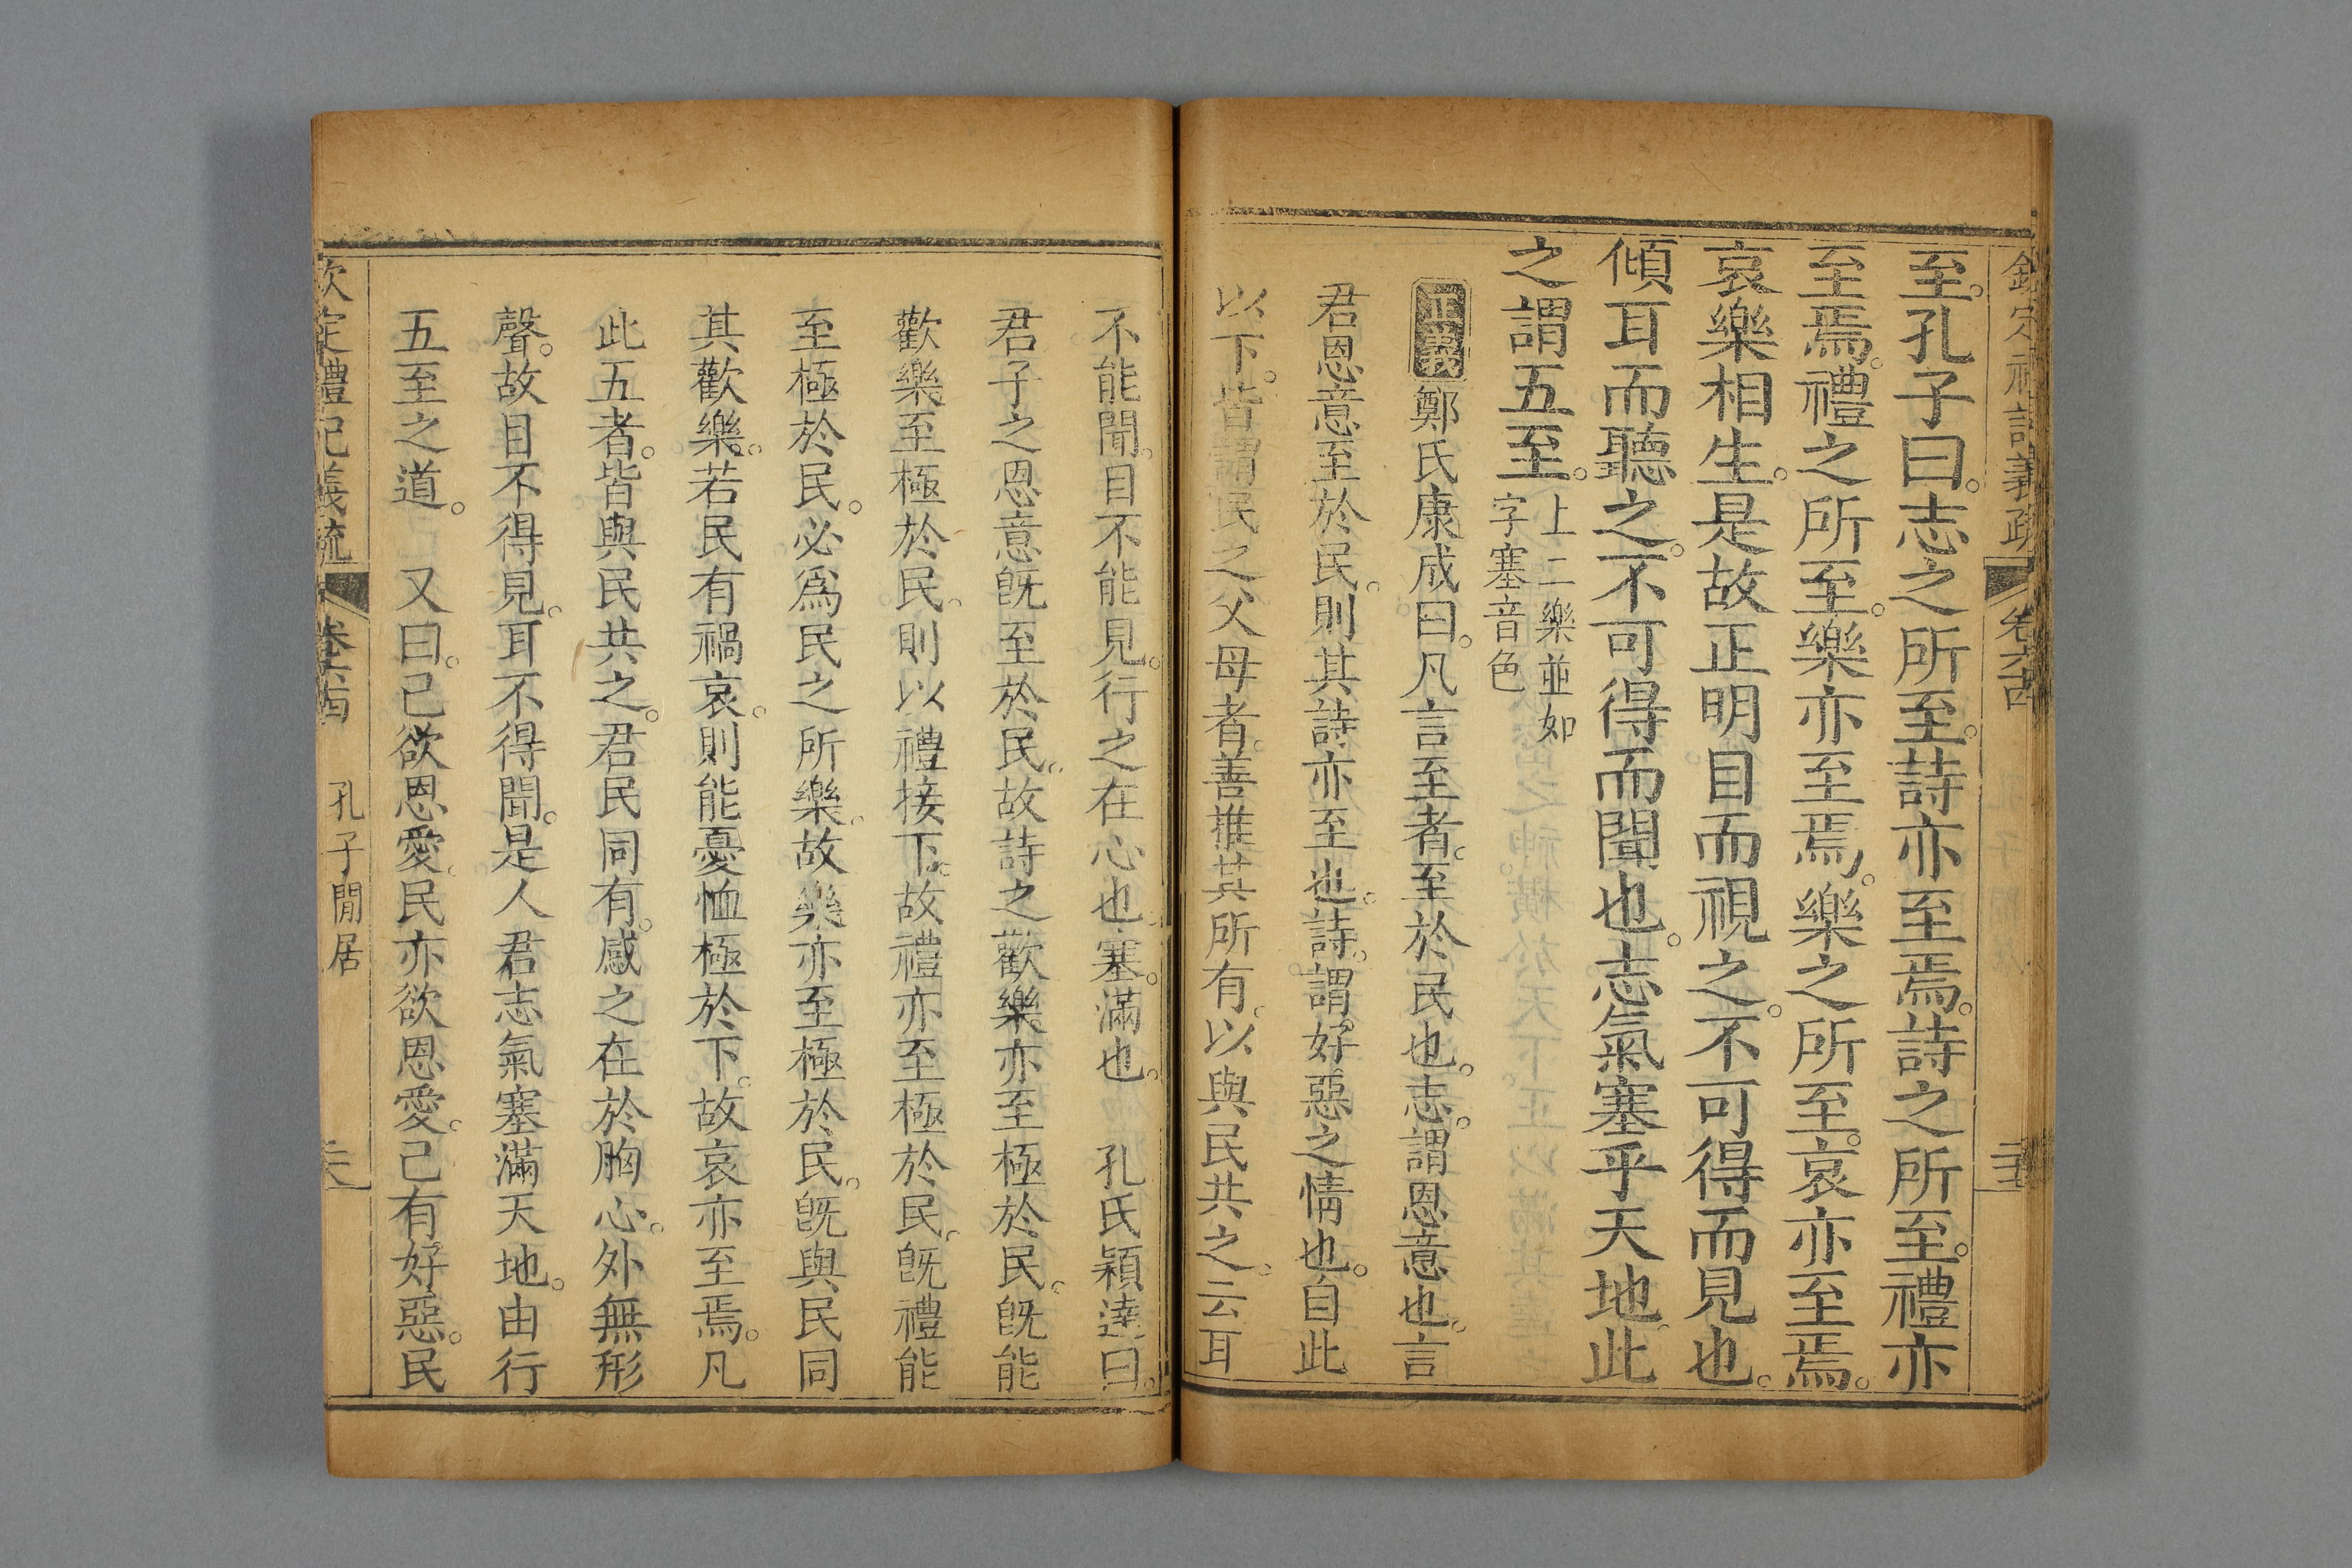 至。孔子曰。志之所至。詩亦至焉。詩之所至。禮亦
至焉。禮之所至。樂亦至焉。樂之所至。哀亦至焉。
哀樂相生。是故正明目而視之。不可得而見也。
傾耳而聽之。不可得而聞也。志氣塞乎天地。此
之謂五至。
上二樂並如
字塞音色
正義 鄭氏康成曰。凡言至者。至於民也。志。謂恩意也。言
君恩意至於民。則其詩亦至也。詩。謂好惡之情也。自此
以下。皆謂民之父母者。善推其所有。以與民共之。云耳
不能聞。目不能見。行之在心也。塞。滿也。 孔氏穎達曰。
君子之恩意既至於民。故詩之歡樂亦至極於民。既能
歡樂至極於民。則以禮接下。故禮亦至極於民。既禮能
至極於民。必爲民之所樂。故樂亦至極於民。既與民同
其歡樂。若民有禍哀。則能憂恤極於下。故哀亦至焉。凡
此五者。皆與民共之。君民同有。感之在於胸心。外無形
聲。故目不得見。耳不得聞。是人君志氣塞滿天地。由行
五至之道。 又曰。己欲恩愛。民亦欲恩愛。己有好惡。民
欽定禮記義疏 卷六十四 孔子閒居